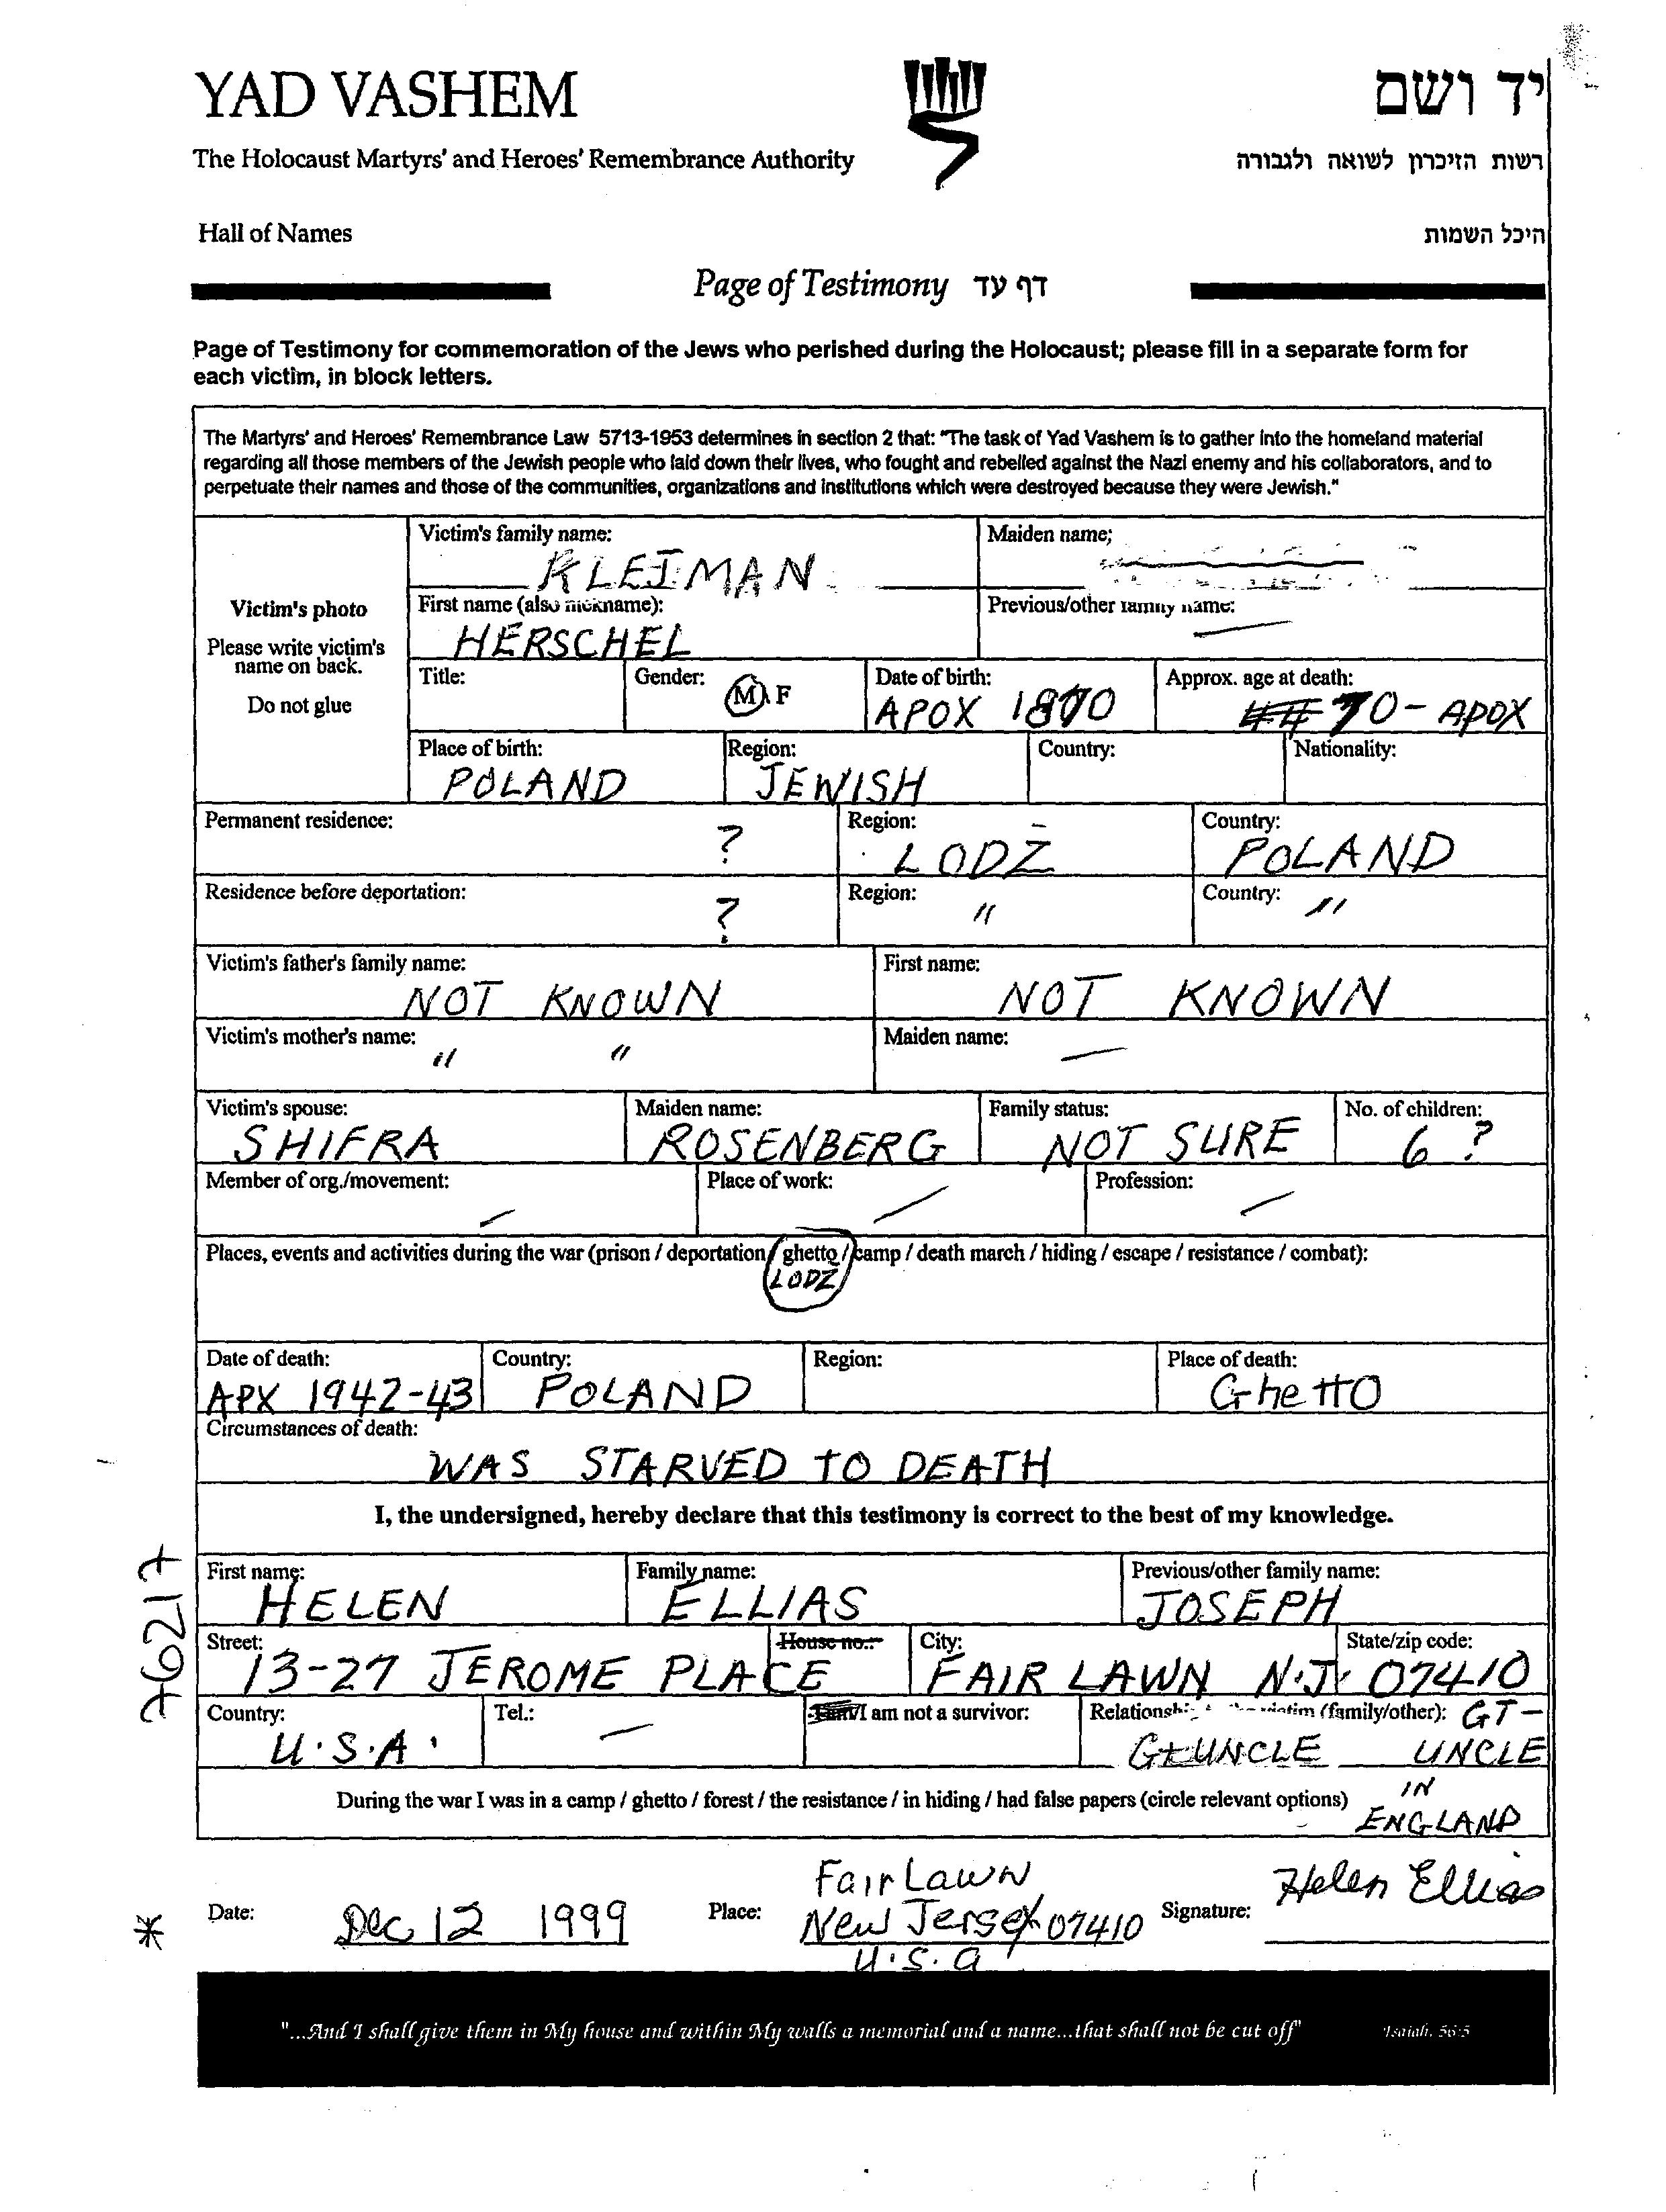 YAD VASHEM
יד ושם
The Holocaust Martyrs' and Heroes' Remembrance Authority
רשות הזיכרון לשואה ולגבורה
Hall of Names
היכל השמות
Page of Testimony דף עד
Page of Testimony for commemoration of the Jews who perished during the Holocaust; please fill in a separate form for
each victim, in block letters.
The Martyrs' and Heroes' Remembrance Law 5713-1953 determines in section 2 that: "The task of Yad Vashem is to gather into the homeland material
regarding all those members of the Jewish people who laid down their lives, who fought and rebelled against the Nazi enemy and his collaborators, and to
perpetuate their names and those of the communities, organizations and institutions which were destroyed because they were Jewish."
Victim's photo
Please write victim's
name on back.
Do not glue
Victim's family name:
KLEJMAN
Maiden name;
First name (also nickname):
HERSCHEL
Previous/other family name:
—
Title:
Gender: M F
Date of birth:
APOX 1870
Approx. age at death:
70 - APOX
Place of birth:
POLAND
Region:
JEWISH
Country:
Nationality:
Permanent residence:
?
Region:
LODZ
Country:
POLAND
Residence before deportation:
?
Region:
"
Country:
"
Victim's father's family name:
NOT KNOWN
First name:
NOT KNOWN
Victim's mother's name:
" "
Maiden name:
—
Victim's spouse:
SHIFRA
Maiden name:
ROSENBERG
Family status:
NOT SURE
No. of children:
6 ?
Member of org./movement:
—
Place of work:
—
Profession:
—
Places, events and activities during the war (prison / deportation / ghetto / camp / death march / hiding / escape / resistance / combat):
LODZ
Date of death:
APX 1942-43
Country:
POLAND
Region:
Place of death:
GhettO
Circumstances of death:
WAS STARVED TO DEATH
I, the undersigned, hereby declare that this testimony is correct to the best of my knowledge.
First name:
HELEN
Family name:
ELLIAS
Previous/other family name:
JOSEPH
Street: House no.:
13-27 JEROME PLACE
City: State/zip code:
FAIR LAWN N.J. 07410
Country:
U.S.A.
Tel.:
—
I am not a survivor:
Relationship victim (family/other): GT-
GT UNCLE UNCLE
During the war I was in a camp / ghetto / forest / the resistance / in hiding / had false papers (circle relevant options)
IN
ENGLAND
76217
*
Date: Dec 12 1999
Place: Fair Lawn
New Jersey 07410
U.S.A
Signature: Helen Ellias
"...And I shall give them in My house and within My walls a memorial and a name...that shall not be cut off"
Isaiah, 56:5